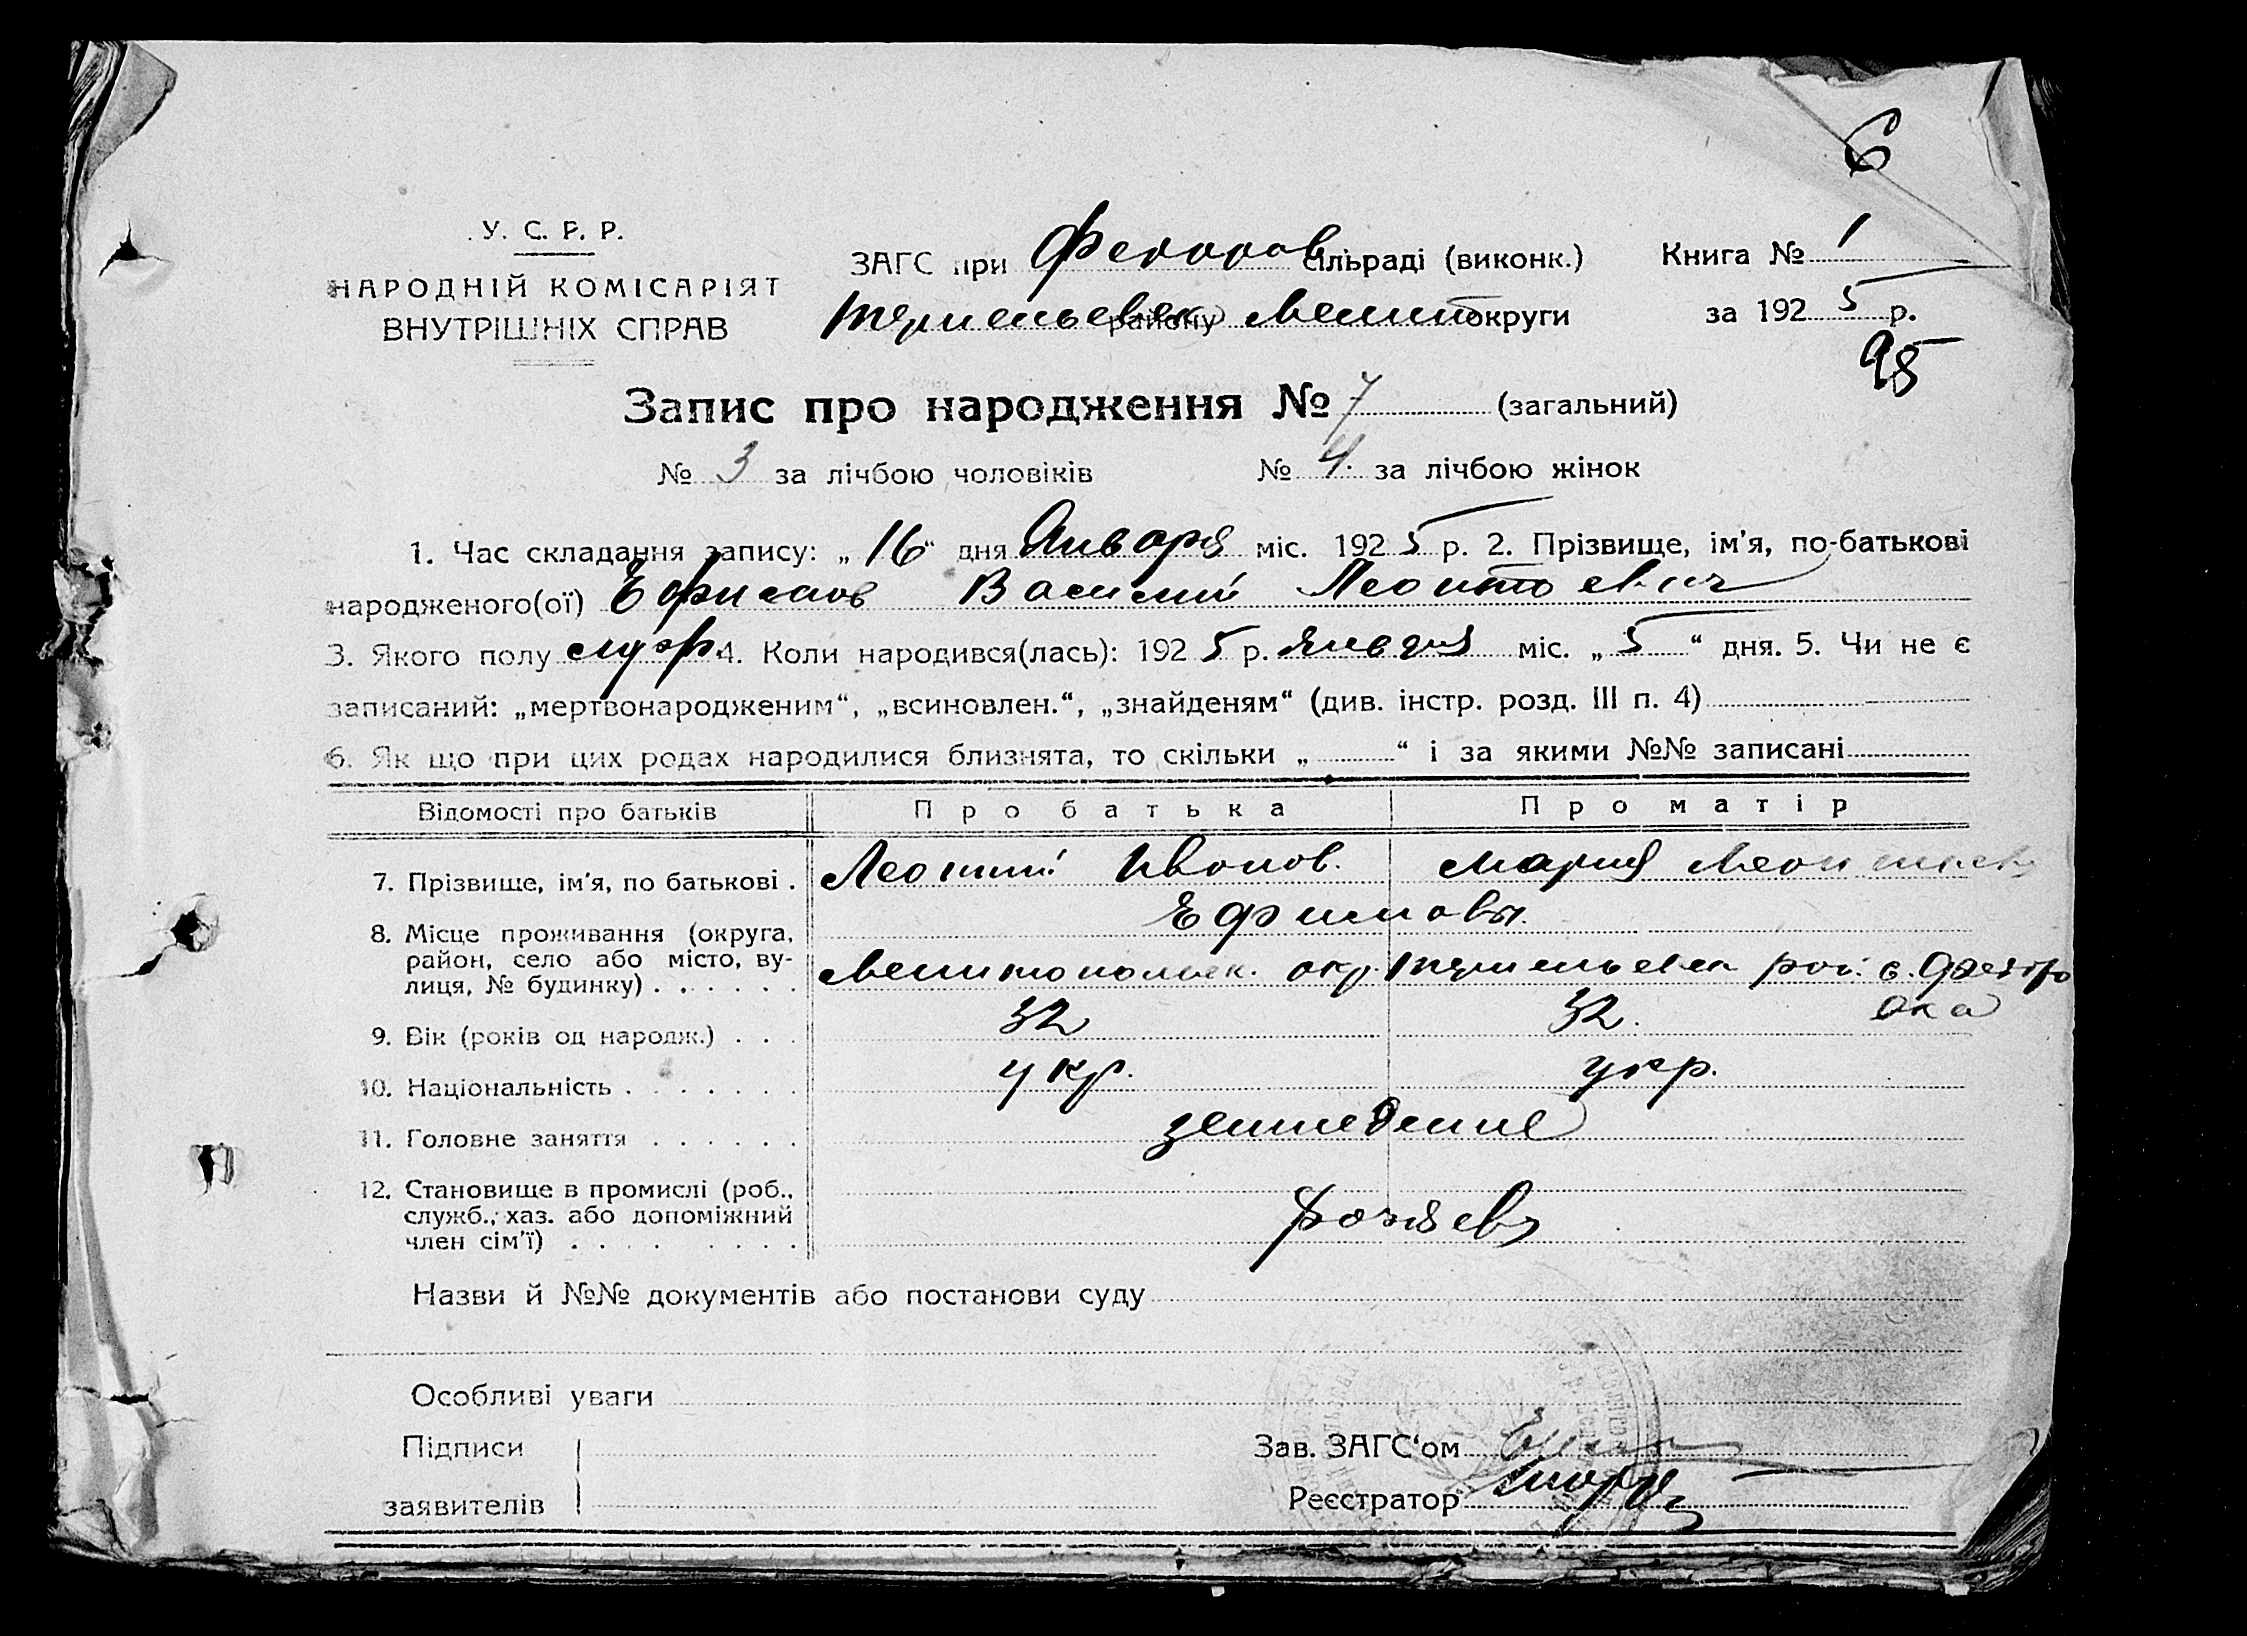 6
У. С. Р. Р.
НАРОДНІЙ КОМІСАРІЯТ
ВНУТРІШНІХ СПРАВ
ЗАГС при Федоров сільраді (виконк.)
району Мелит округи
Книга № 1
за 1925 р.
95
Запис про народження № 7 (загальний)
№ 3 за лічбою чоловіків № 4. за лічбою жінок
1. Час складання запису: „16“ дня Января міс. 1925 р. 2. Прізвище, ім'я, по-батькові
народженого(ої) Ефимов Василий Леонтоевич
3. Якого полу муж. 4. Коли народився(лась): 1925 р. Января міс. „5“ дня. 5. Чи не є
записаний: „мертвонародженим“, „всиновлен.“, „знайденям“ (див. інстр. розд. III п. 4)
6. Як що при цих родах народилися близнята, то скільки „ “ і за якими №№ записані
Відомості про батьків Про батька Про матір
7. Прізвище, ім'я, по батькові . Леонтий Иванов. Мария
Ефимовы.
8. Місце проживання (округа,
район, село або місто, ву-
лиця, № будинку) . . . . . . Мелитопольск. окр. с. Федоро
вка
9. Вік (років од народж.) . . . 32 32.
10. Національність . . . . . . . укр. укр.
11. Головне заняття . . . . . . земледелие
12. Становище в промислі (роб.,
служб., хаз. або допоміжний
член сім'ї) . . . . . . . . хозяев
Назви й №№ документів або постанови суду
Особливі уваги
Підписи
заявителів
Зав. ЗАГС'ом
Реєстратор